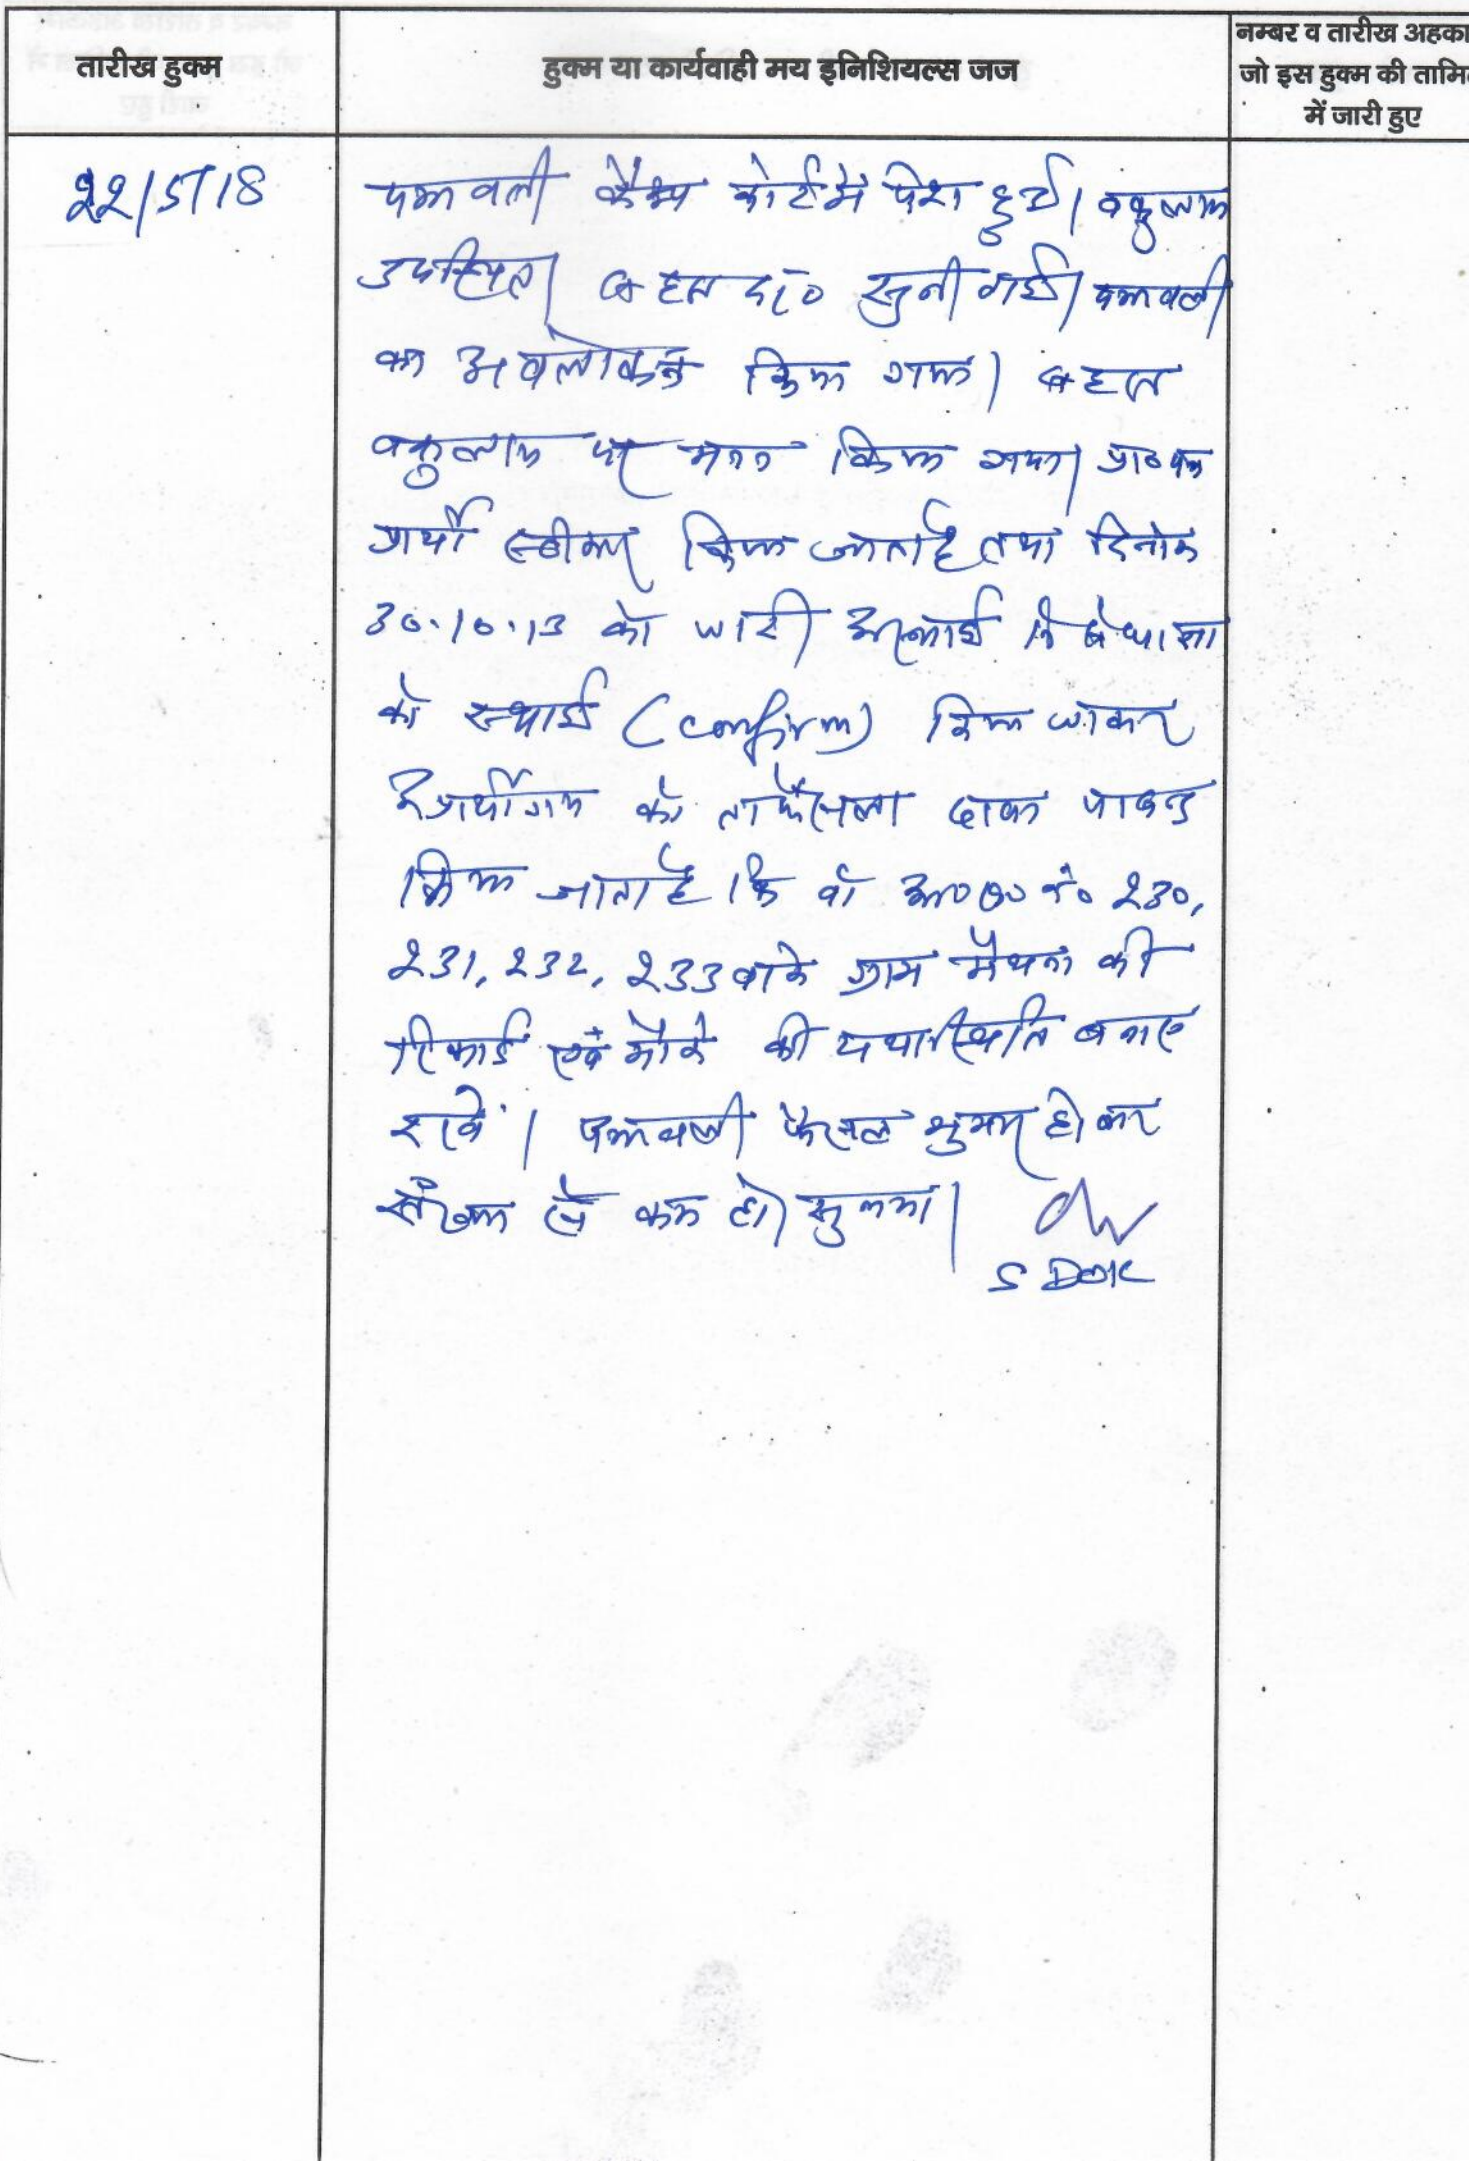 तारीख हुक्म
हुक्म या कार्यवाही मय इनिशियल्स जज
नम्बर व तारीख अहका
जो इस हुक्म की तामि
में जारी हुए
22/5/18
पत्रावली कैम्प कोर्ट में पेश हुई। वकुलाय
उपस्थित। बहस सुनी गई। पत्रावली
का अवलोकन किया गया। बहस
वकुलाय पर मनन किया गया। प्रा० पत्र
प्रार्थी स्वीकार किया जाता है तथा दिनांक
30.10.13 को जारी अस्थाई निषेधाज्ञा
को स्थाई (confirm) किया जाकर
अप्रार्थीगण को ताफैसला दावा पाबन्द
किया जाता है कि वो आ० ख० नं० 230,
231, 232, 233 वाके ग्राम मैथना की
रिकार्ड एवं मौके की यथास्थिति बनाए
रखें। पत्रावली फैसल शुमार होकर
संख्या से कम हो।